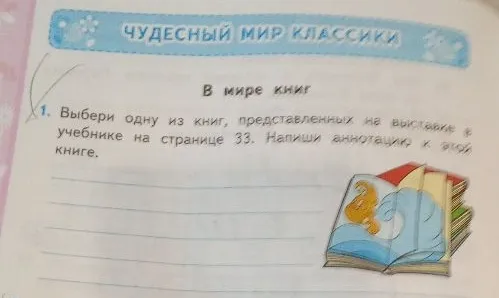 ЧУДЕСНЫЙ МИР КЛАССИКИ
В мире книг
1. Выбери одну из книг, представленных на выставке в
учебнике на странице 33. Напиши аннотацию к этой
книге.